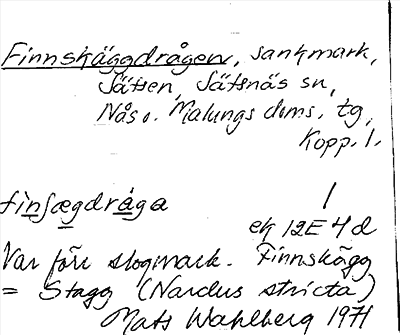 Finnskäggdrågen, sankmark,
Sätsen, Säfsnäs sn,
Nås o. Malungs doms. tg,
Kopp. l.
finsægdråga
ek 12E 4d
Var förr slogmark. Finnskägg
= Stagg (Nardus stricta)
Mats Wahlberg 1971